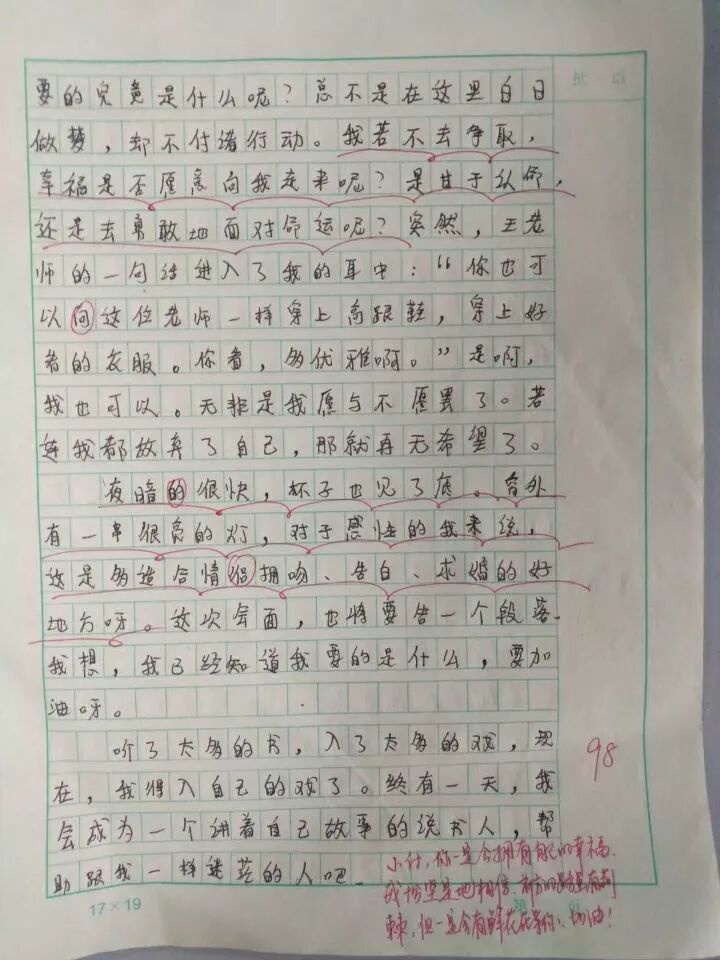 批 点
要的究竟是什么呢？总不是在这里白日
做梦，却不付诸行动。我若不去争取，
幸福是否愿意向我走来呢？是甘于认命，
还是去勇敢地面对命运呢？突然，王老
师的一句话进入了我的耳中：“你也可
以向这位老师一样穿上高跟鞋，穿上好
看的衣服。你看，多优雅啊。”是啊，
我也可以。无非是我愿与不愿罢了。若
连我都放弃了自己，那就再无希望了。
夜暗的很快，杯子也见了底。窗外
有一串很亮的灯，对于感性的我来说，
这是多适合情侣拥吻、告白、求婚的好
地方呀。这次会面，也将要告一个段落。
我想，我已经知道我要的是什么，要加
油呀。
听了太多的书，入了太多的戏，现
在，我将入自己的戏了。终有一天，我
会成为一个讲着自己故事的说书人，帮
助跟我一样迷茫的人吧。
98
小付，你一定会拥有自己的幸福。
我坚定地相信，前方的路会有荆
棘，但一定会有鲜花在等你，加油！
17×19
第